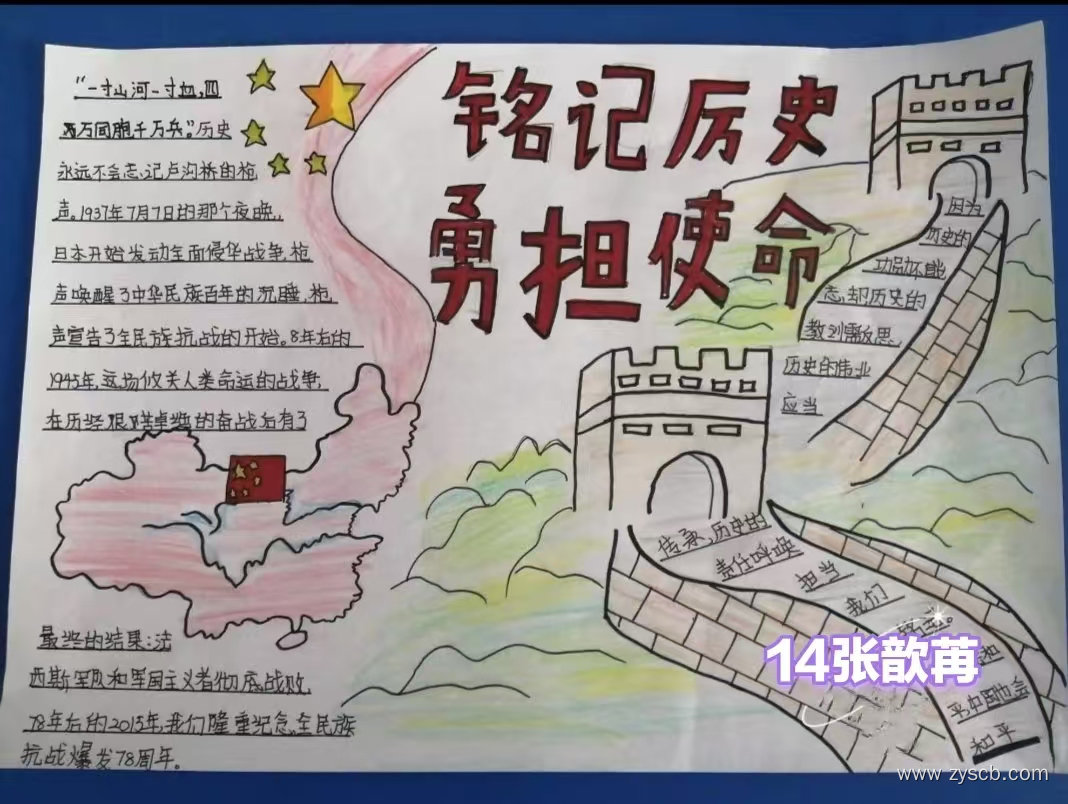 铭记历史
勇担使命
"一寸山河一寸血,四
万万同胞千万兵。"历史
永远不会忘记卢沟桥的枪
声。1937年7月7日的那个夜晚,
日本开始发动全面侵华战争,枪
声唤醒了中华民族百年的沉睡,枪
声宣告了全民族抗战的开始。8年后的
1945年,这场攸关人类命运的战争,
在历经艰难卓绝的奋战后有了
最终的结果:法
西斯军队和军国主义者彻底战败
78年后的2015年,我们隆重纪念全民族
抗战爆发78周年。
因为
历史的
功勋不能
忘,却历史的
教训需反思,
历史的伟业
应当
传承,历史的
责任呼唤
担当
我们
和
平,中国也会
和平
14张歆苒
www.zyscb.com